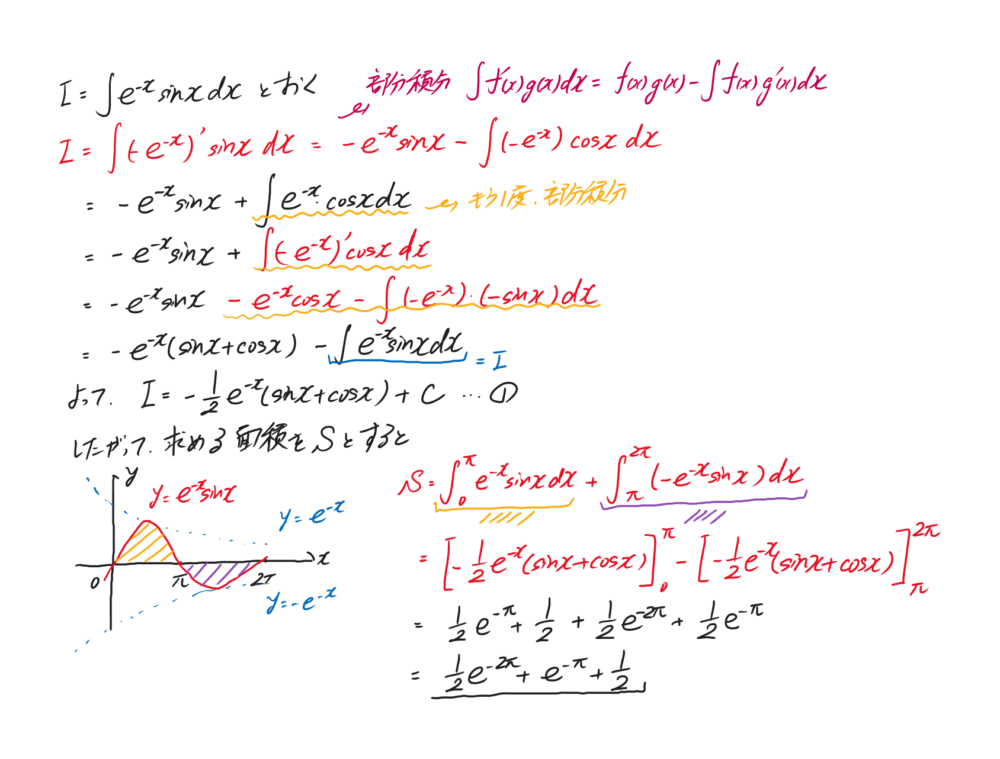 I = ∫e⁻ˣ sinx dx とおく 部分積分 ∫f'(x)g(x)dx = f(x)g(x) - ∫f(x)g'(x)dx
I = ∫(-e⁻ˣ)' sinx dx = -e⁻ˣ sinx - ∫(-e⁻ˣ) cosx dx
= -e⁻ˣ sinx + ∫e⁻ˣ・cosx dx もう1度、部分積分
= -e⁻ˣ sinx + ∫(-e⁻ˣ)' cosx dx
= -e⁻ˣ sinx - e⁻ˣ cosx - ∫(-e⁻ˣ)・(-sinx)dx
= -e⁻ˣ(sinx+cosx) - ∫e⁻ˣ sinx dx = I
よって、 I = -1/2 e⁻ˣ(sinx+cosx) + C … ①
したがって、求める面積をSとすると
y
y = e⁻ˣ sinx
y = e⁻ˣ
x
0
π
2π
y = -e⁻ˣ
S = ∫₀^π e⁻ˣ sinx dx + ∫_π^2π (-e⁻ˣ sinx)dx
= [-1/2 e⁻ˣ(sinx+cosx)]₀^π - [-1/2 e⁻ˣ(sinx+cosx)]_π^2π
= 1/2 e^-π + 1/2 + 1/2 e^-2π + 1/2 e^-π
= 1/2 e^-2π + e^-π + 1/2